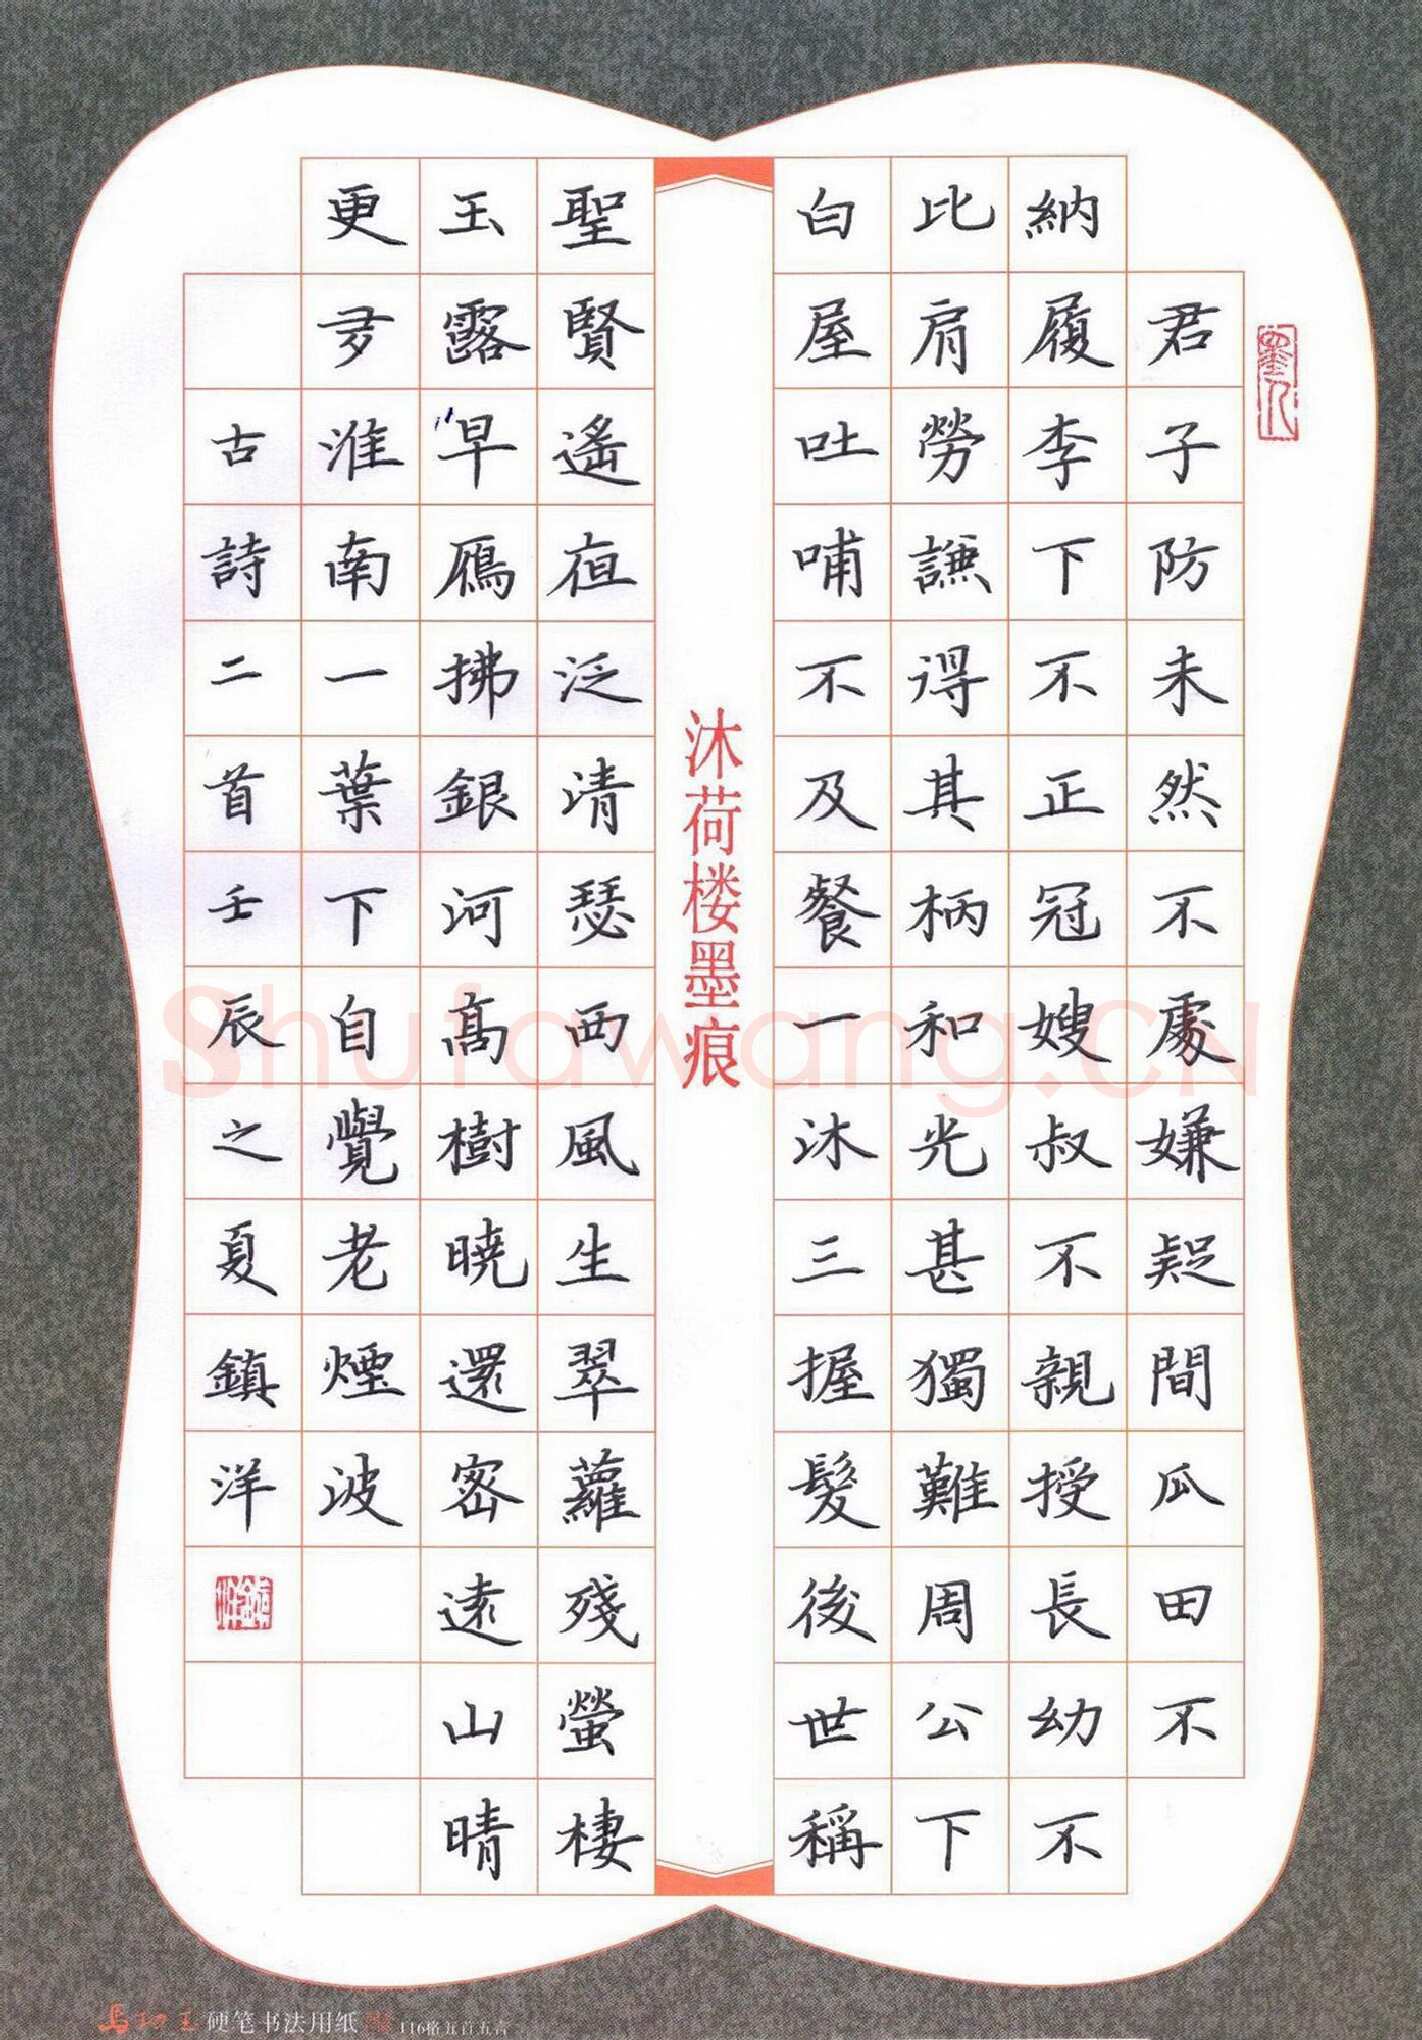 君子防未然不處嫌疑間瓜田不
納履李下不正冠嫂叔不親授長幼不
比肩勞謙得其柄和光甚獨難周公下
白屋吐哺不及餐一沐三握髮後世稱
沐荷楼墨痕
聖賢遙夜泛清瑟西風生翠蘿殘螢棲
玉露早鴈拂銀河高樹曉還密遠山晴
更多淮南一葉下自覺老煙波
古詩二首壬辰之夏鎮洋
硬笔书法用纸 116格五首五言
Shufawang.CN